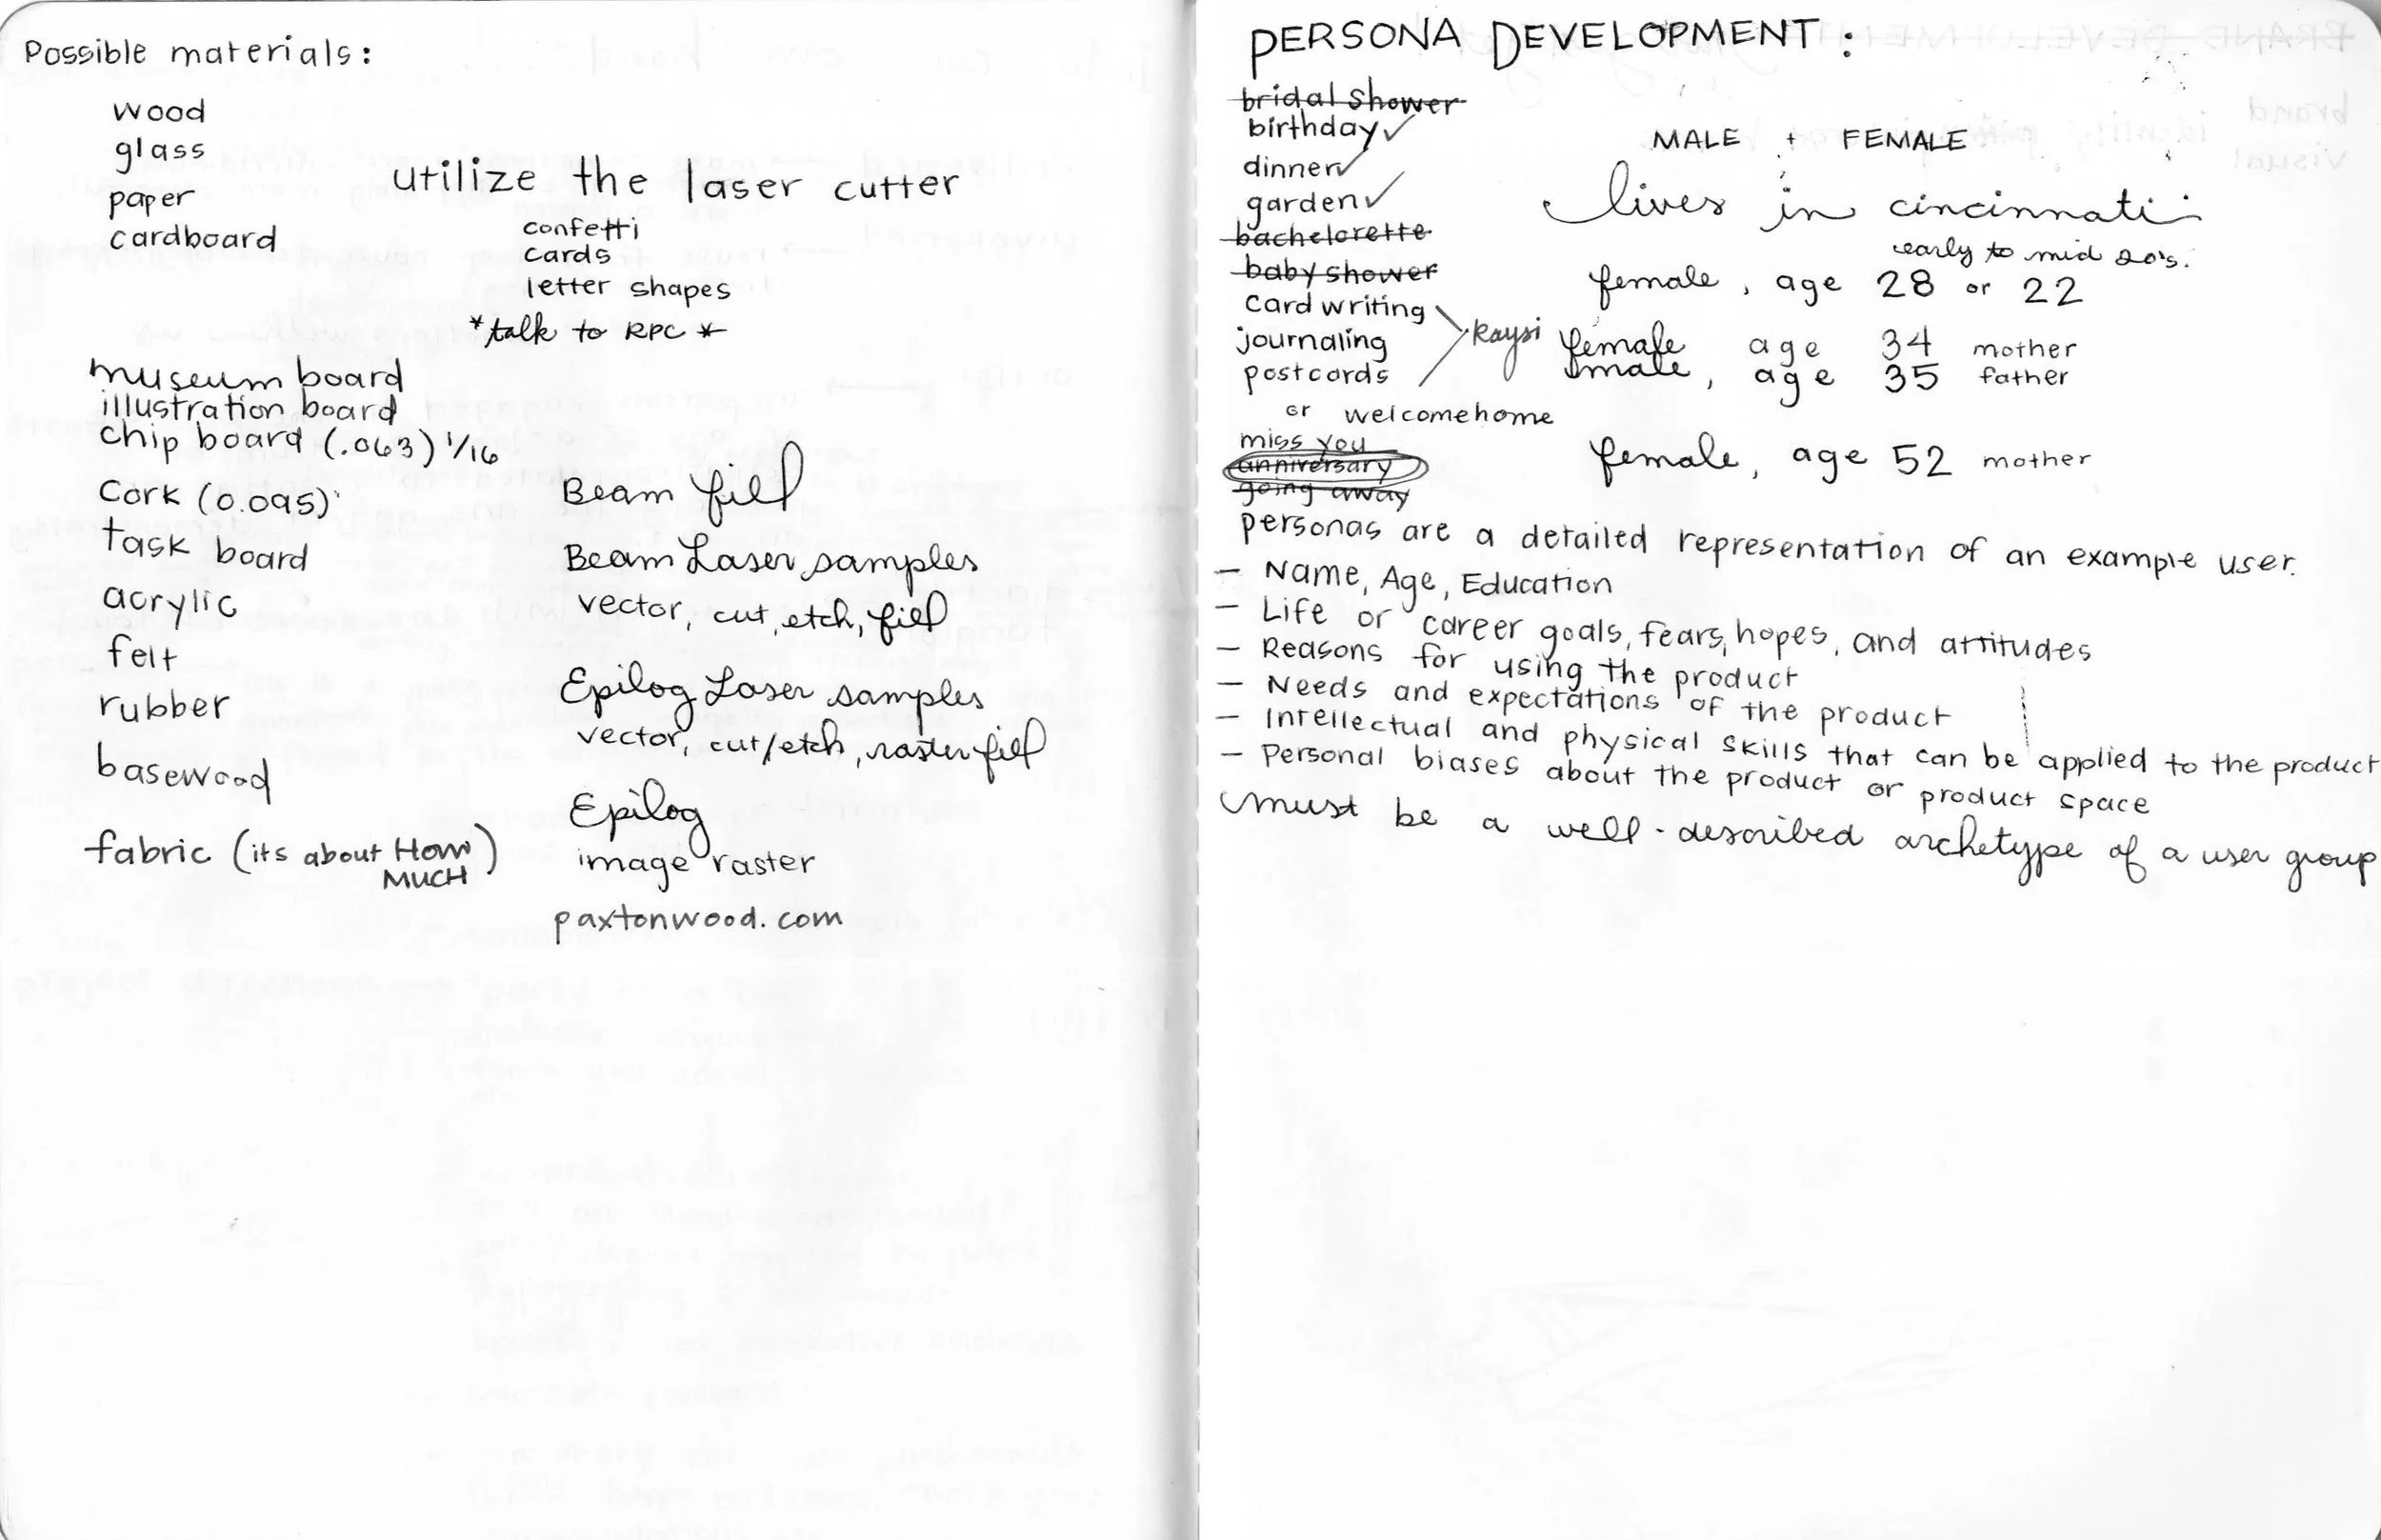 Possible materials:
wood
glass
paper
cardboard
utilize the laser cutter
confetti
cards
letter shapes
*talk to RPC*
museum board
illustration board
chip board (.063) 1/16
cork (0.095)
task board
acrylic
felt
rubber
basewood
fabric (its about HOW MUCH)
Beam fill
Beam Laser samples
vector, cut, etch, fill
Epilog Laser samples
vector, cut/etch, raster fill
Epilog
image raster
paxtonwood.com
PERSONA DEVELOPMENT:
bridal shower
birthday ✓
dinner ✓
garden ✓
bachelorette
baby shower
card writing
journaling
postcards
kaysi
or welcome home
miss you
anniversary
going away
MALE + FEMALE
lives in cincinnati
early to mid 20's.
female, age 28 or 22
female, age 34 mother
male, age 35 father
female, age 52 mother
personas are a detailed representation of an example user.
- Name, Age, Education
- Life or career goals, fears, hopes, and attitudes
- Reasons for using the product
- Needs and expectations of the product
- Intellectual and physical skills that can be applied to the product
- Personal biases about the product or product space
must be a well-described archetype of a user group